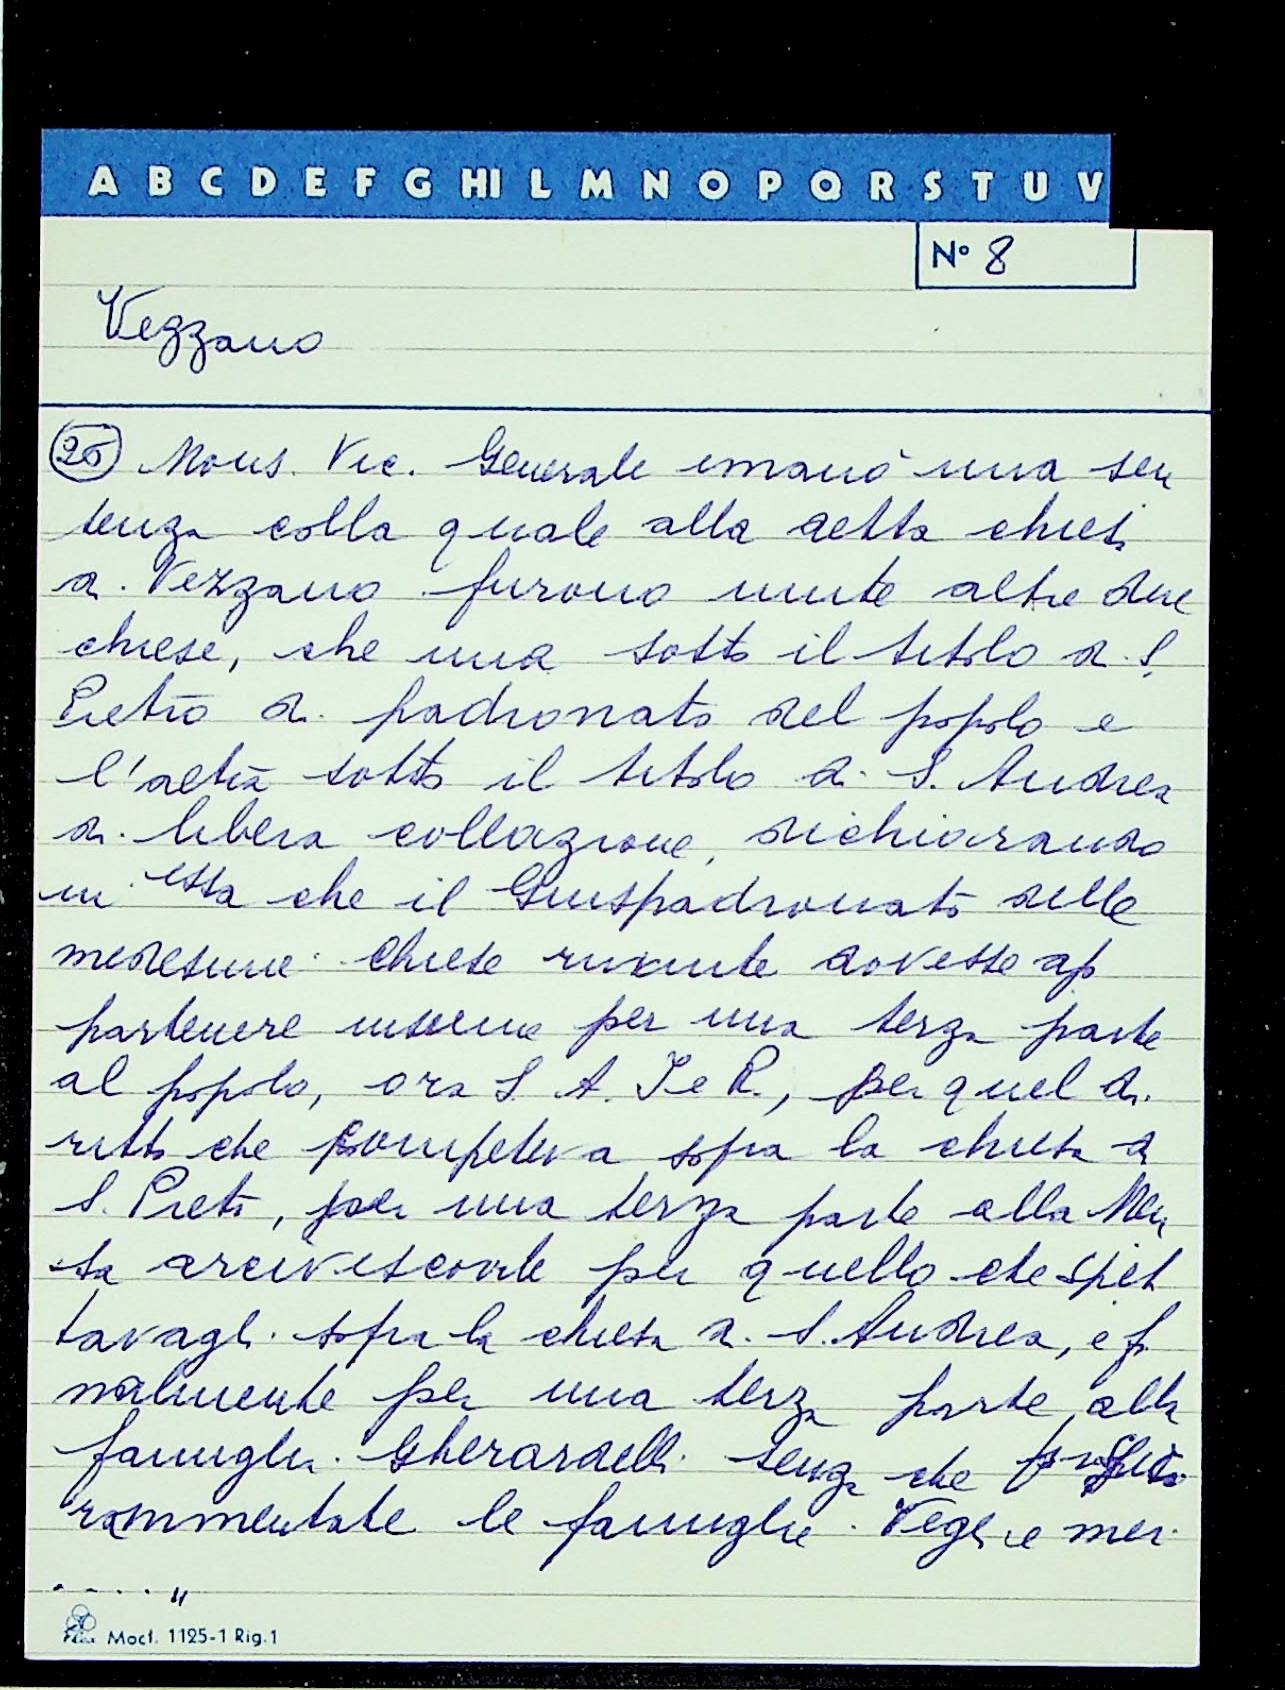 A B C D E F G HI L M N O P Q R S T U V
N° 8
Vezzano
26 Mons. Vic. Generale emanò una sen
tenza colla quale alla detta chiesa
di Vezzano furono unite altre due
chiese, che una sotto il titolo di S.
Pietro di padronato del popolo e
l'altra sotto il titolo di S. Andrea
di libera collazione, dichiarando
in essa che il Giuspadronato delle
medesime chiese riunite dovesse ap
partenere insieme per una terza parte
al popolo, ora S. A. I e R., per quel di
ritto che competeva sopra la chiesa di
S. Pietro, per una terza parte alla Men
sa arcivescovile per quello che spet
tavagli sopra la chiesa di S. Andrea, e fi
nalmente per una terza parte alla
famiglia Gherardelli senza che
rammentate le famiglie e
. . . . "
Mod. 1125-1 Rig.1